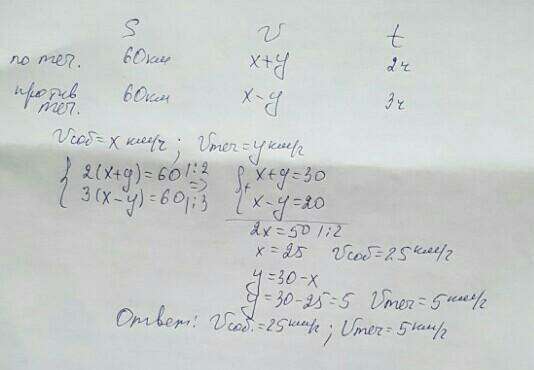 S V t
по теч. 60км x+y 2ч
против теч. 60км x-y 3ч
Vсоб=x км/ч; Vтеч=y км/ч
{ 2(x+y)=60 |:2 => { x+y=30
{ 3(x-y)=60 |:3 + { x-y=20
2x=50 |:2
x=25 Vсоб=25км/ч
y=30-x
y=30-25=5 Vтеч=5км/ч
Ответ: Vсоб.=25км/ч; Vтеч=5км/ч